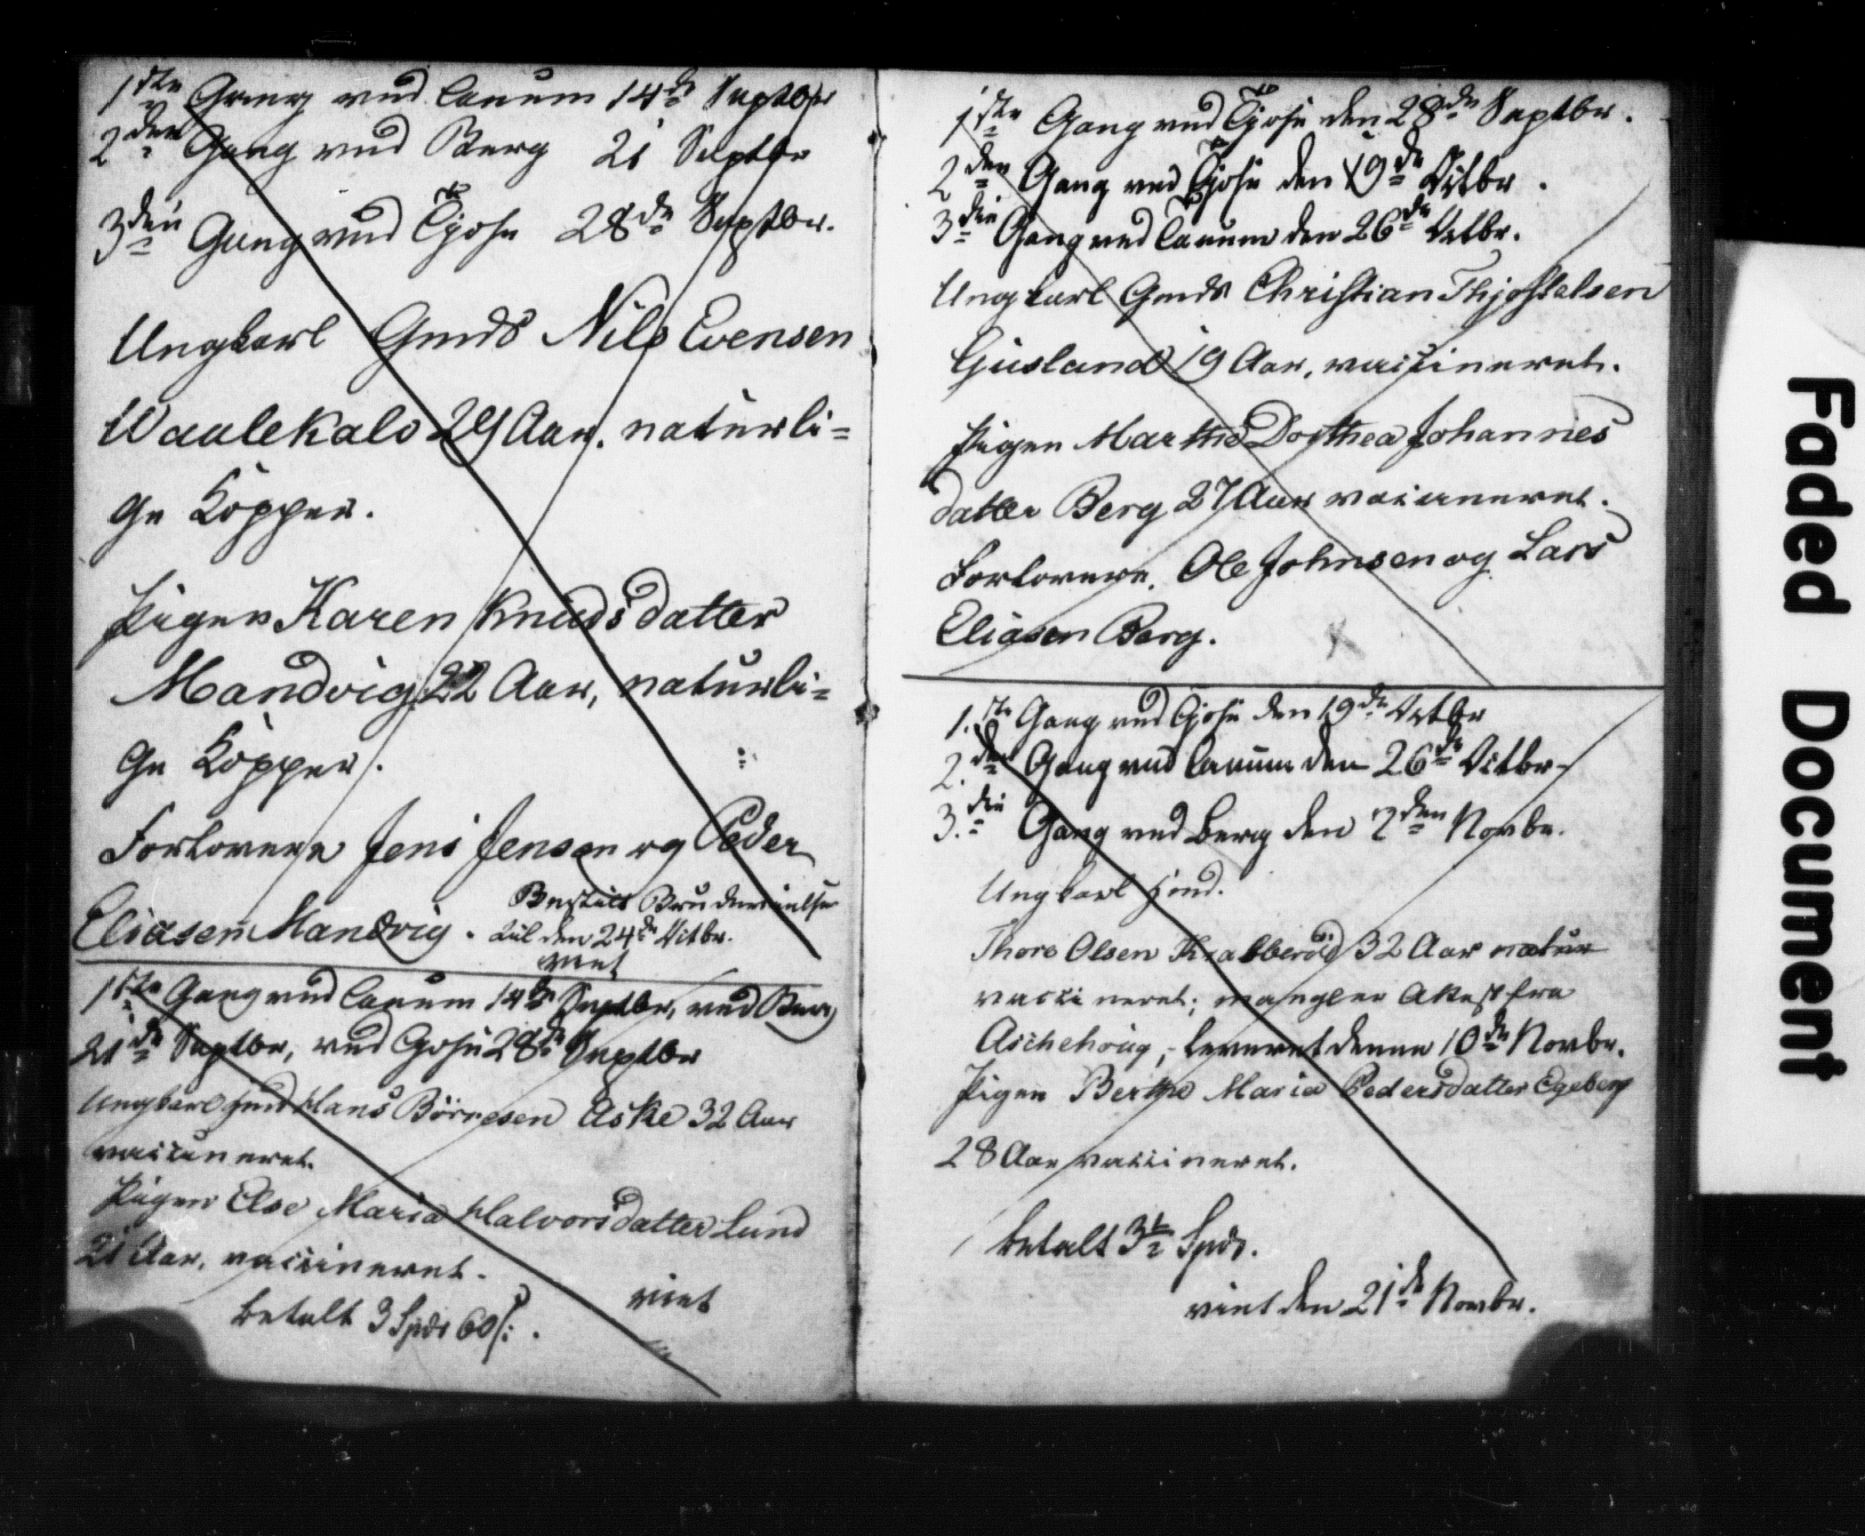 1ste Gang ved Laurum 14de Septbr
2den Gang ved Berg 21 Septbr
3die Gang ved Tjose 28de Septbr.
Ungkarl Gmds Nils Evensen
Waalekalv 29 Aar. naturli=
ge Kopper.
Pigen Karen Knudsdatter
Mandvig 22 Aar, naturli=
ge Kopper.
Forlovere Jens Jensen og Peder
Eliasen Mandvig.
Bestilt Brudevielse
til den 24de Octbr.
viet
1ste Gang ved Laurum 14de Septbr, ved Berg
21de Septbr, ved Tjose 28de Septbr
Ungkarl Hans Börresen Aske 32 Aar
vaccineret.
Pigen Else Maria Halvorsdatter Lund
21 Aar, vaccineret.
betalt 3 Spdr 60 s.
viet
1ste Gang ved Tjose den 28de Septbr.
2den Gang ved Tjose den 19de Octbr.
3die Gang ved Laurum den 26de Octbr.
Ungkarl Gmds Christian Thjostelsen
Gusland 19 Aar, vaccineret.
Pigen Marthe Dorthea Johannes
datter Berg 27 Aar vaccineret.
Forlovere. Ole Johnsen og Lars
Eliasen Berg.
1.ste Gang ved Tjose den 19de Octbr
2.den Gang ved Laurum den 26de Octbr
3.die Gang ved Berg den 2den Novbr.
Ungkarl
Thore Olsen Krabberød 32 Aar natur
vaccineret; mangler Attest fra
Aschehoug, leveret denne 10de Novbr.
Pigen Berthe Maria Pedersdatter Egeberg
28 Aar vaccineret.
betalt 3½ Spdr.
viet den 21de Novbr.
Faded Document